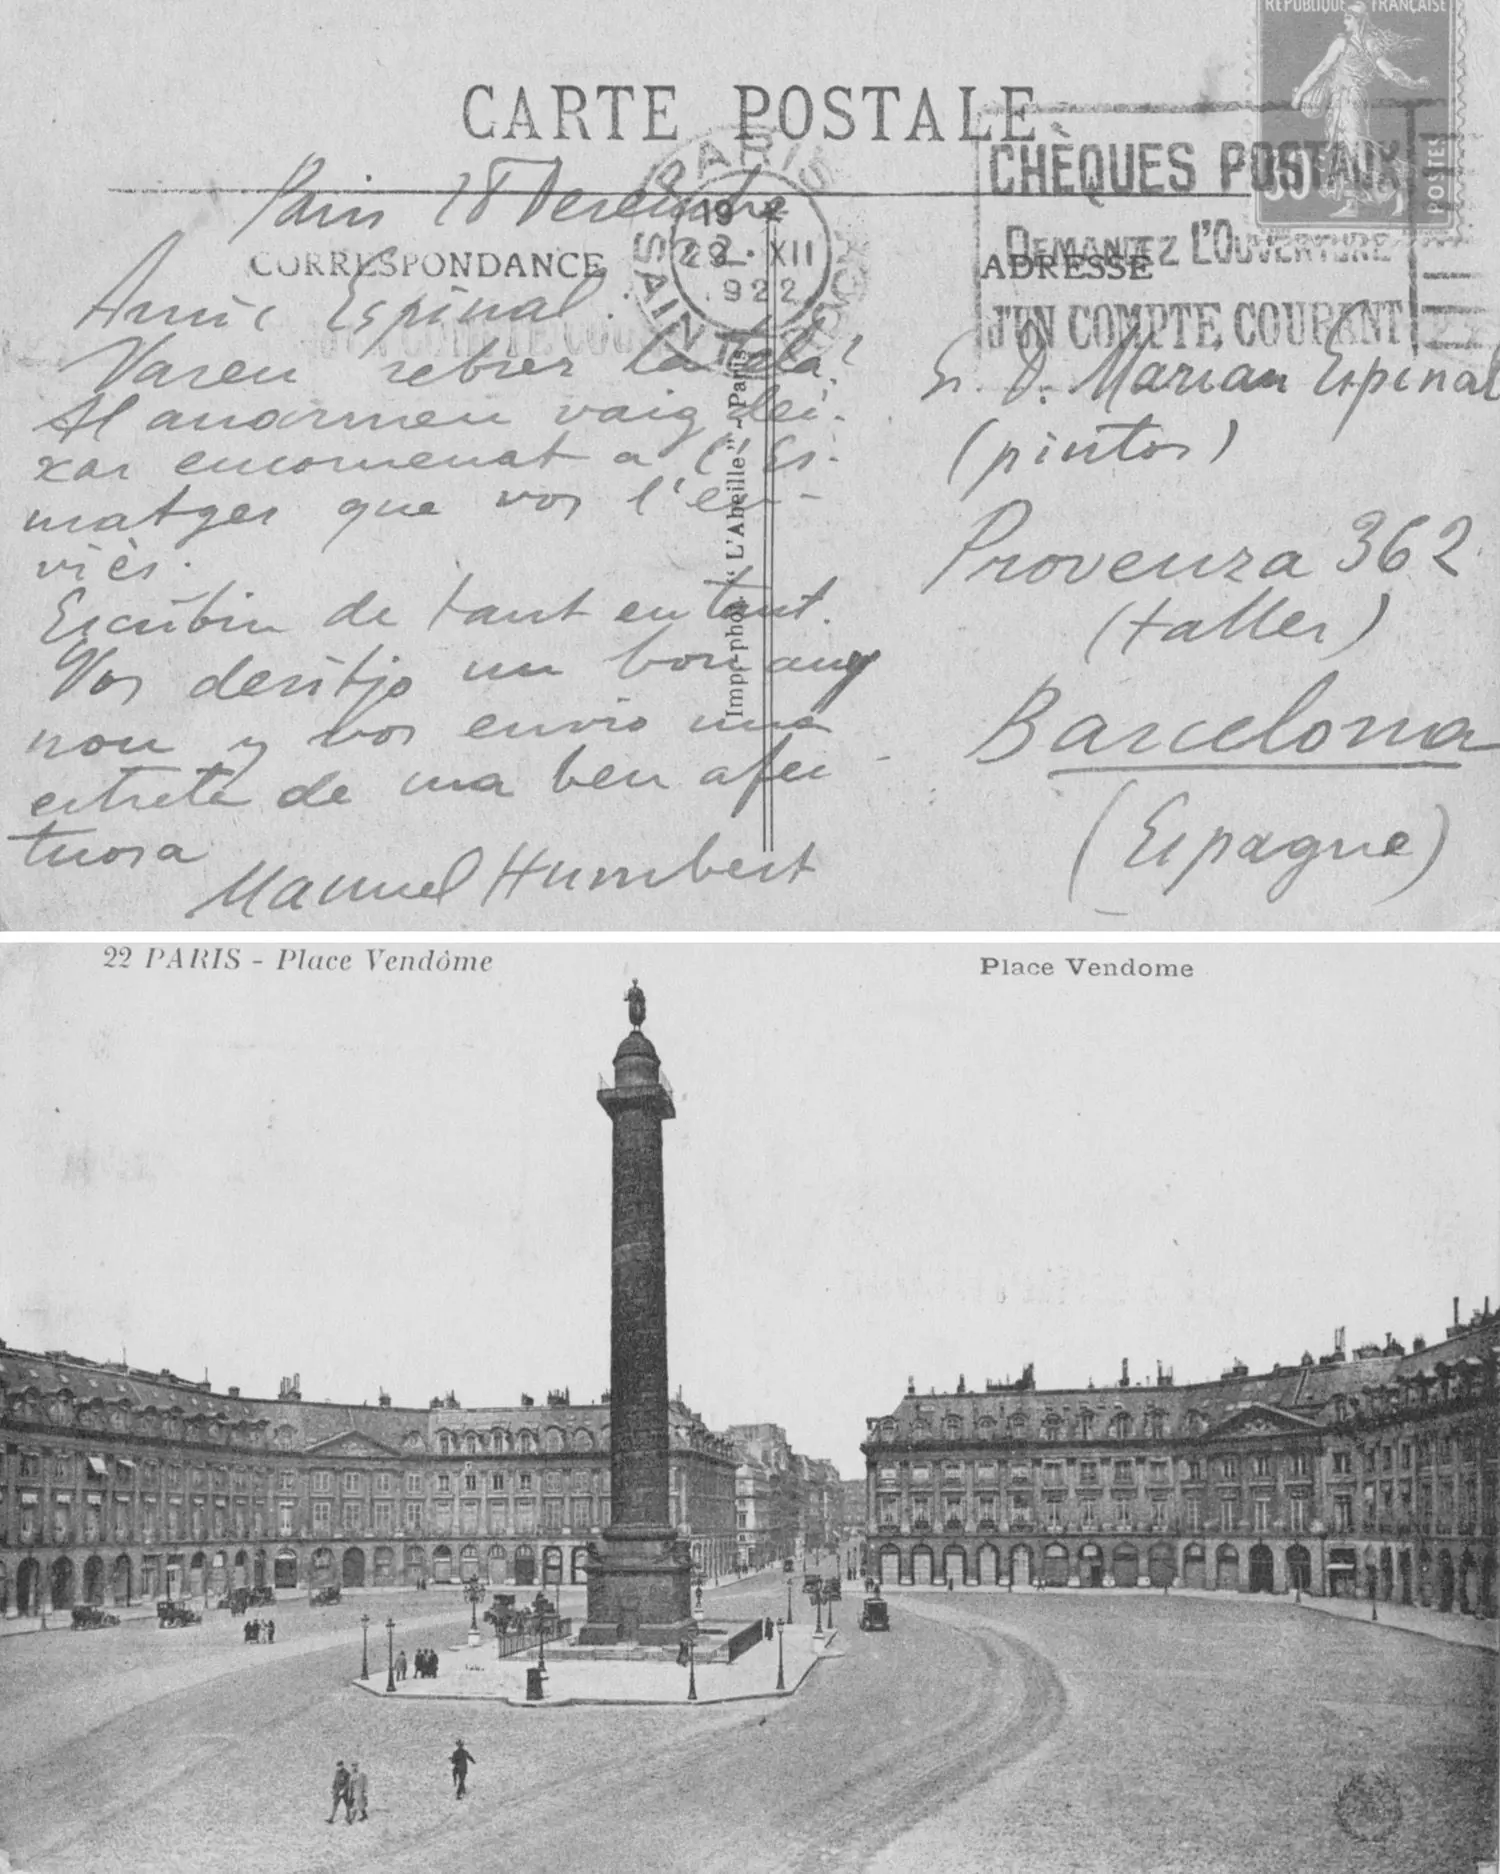 RÉPUBLIQUE FRANÇAISE
POSTES
CARTE POSTALE
CHÈQUES POSTAUX
DEMANDEZ L'OUVERTURE
D'UN COMPTE COURANT
PARIS
19
28 · XII
922
CORRESPONDANCE
ADRESSE
Paris 28 Desembre
Amic Espinal.
Varen rebrer la tela?
Al anarmen vaig dei-
xar encomenat a l'Es-
matges que vos l'en-
viès.
Escribin de tant en tant.
Vos desitjo un bon any
nou y vos envio una
estreta de ma ben afec
tuosa
Manuel Humbert
Impr-phot. "L'Abeille" - Paris
Sr. D. Marian Espinal
(pintor)
Provenza 362
(taller)
Barcelona
(Espagne)
22 PARIS - Place Vendôme
Place Vendome